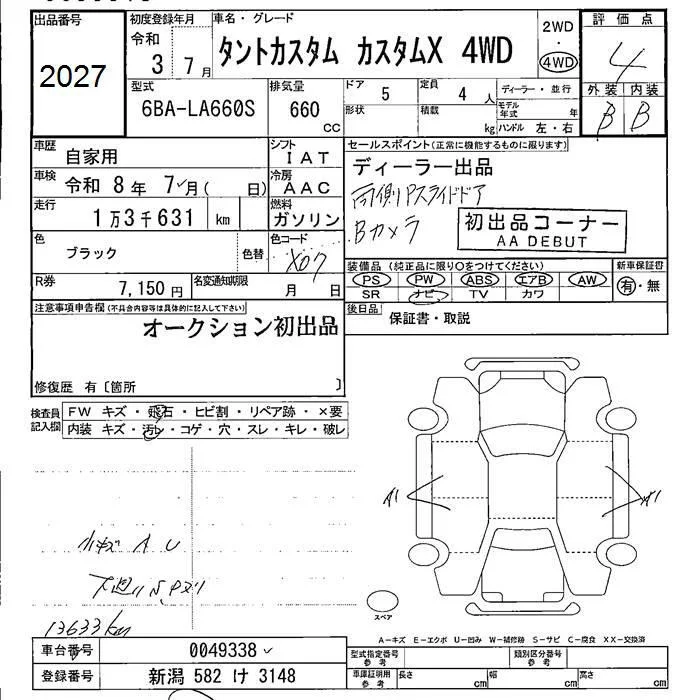 出品番号
2027
初度登録年月
令和
3 7月
車名・グレード
タントカスタム カスタムX 4WD
2WD
・
4WD
評価点
4
外装 内装
B B
型式
6BA-LA660S
排気量
660
cc
ドア
5
定員
4 人
形状
積載
kg
ディーラー・並行
モデル年式
年
ハンドル 左・右
車歴
自家用
シフト
IAT
車検
令和 8年 7月( 日)
冷房
AAC
走行
1万3千631 km
燃料
ガソリン
色
ブラック
色替
色コード
X07
R券
7,150円
名変通知期限
月 日
セールスポイント(正常に機能するものに限ります)
ディーラー出品
両側Pスライドドア
Bカメラ
初出品コーナー
AA DEBUT
装備品(純正品に限り○をつけてください)
PS PW ABS エアB AW
SR ナビ TV カワ
新車保証書
有・無
後日品
保証書・取説
注意事項申告欄(不具合内容等は具体的に記入して下さい)
オークション初出品
修復歴 有〔箇所 〕
検査員記入欄
FW キズ・飛石・ヒビ割・リペア跡・×要
内装 キズ・汚レ・コゲ・穴・スレ・キレ・破レ
A1
小キズ A U
下廻りS,Pヌリ
13633km
スペア
A-キズ E-エクボ U-凹み W-補修跡 S-サビ C-腐食 XX-交換済
車台番号
0049338
登録番号
新潟 582 け 3148
型式指定番号
参考
類別区分番号
参考
車庫証明用
参考
長さ cm
幅 cm
高さ cm